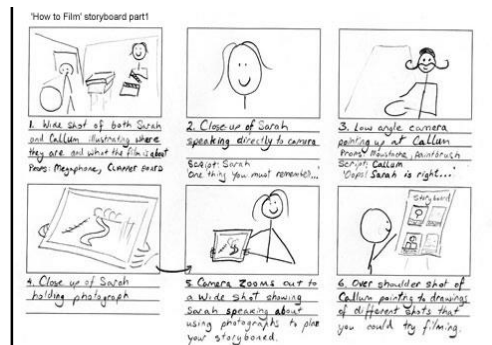 'How to Film' storyboard part1
1. Wide shot of both Sarah
and Callum illustrating where
they are and what the film is about
Props: Megaphone, CLAPPER BOARD
2. Close-up of Sarah
speaking directly to camera
Script: Sarah
'One thing you must remember...'
3. Low angle camera
pointing up at Callum
Props: Moustache, paintbrush
Script: Callum
'Oops! Sarah is right...'
4. Close up of Sarah
holding photograph
5. Camera ZOOMS out to
a Wide SHOT showing
Sarah speaking about
using photographs to plan
your storyboned.
Storyboard
6. Over shoulder shot of
Callum pointing to drawings
of different shots that
you could try filming.